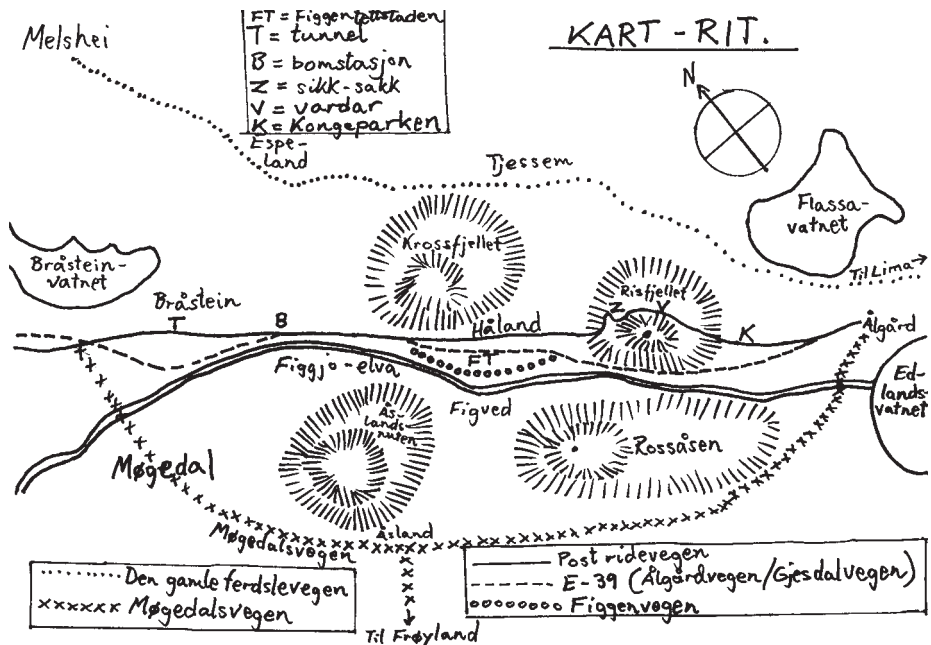 Melshei
FT = Figgentettstaden
T = tunnel
B = bomstasjon
Z = sikk-sakk
V = vardar
K = Kongeparken
KART - RIT.
N
Espe-
land
Tjessem
Flassa-
vatnet
Krossfjellet
Bråstein-
vatnet
Til Lima →
Risfjellet
Bråstein
T
B
Håland
Z
V
K
Ålgård
FT
Figgjo-elva
Figved
Ed-
lands-
vatnet
Ås-
lands-
nuten
Rossåsen
Møgedal
Møgedalsvegen
Åsland
Til Frøyland
Den gamle ferdslevegen
Møgedalsvegen
Post ridevegen
E-39 (Ålgårdvegen/Gjesdalvegen)
Figgenvegen